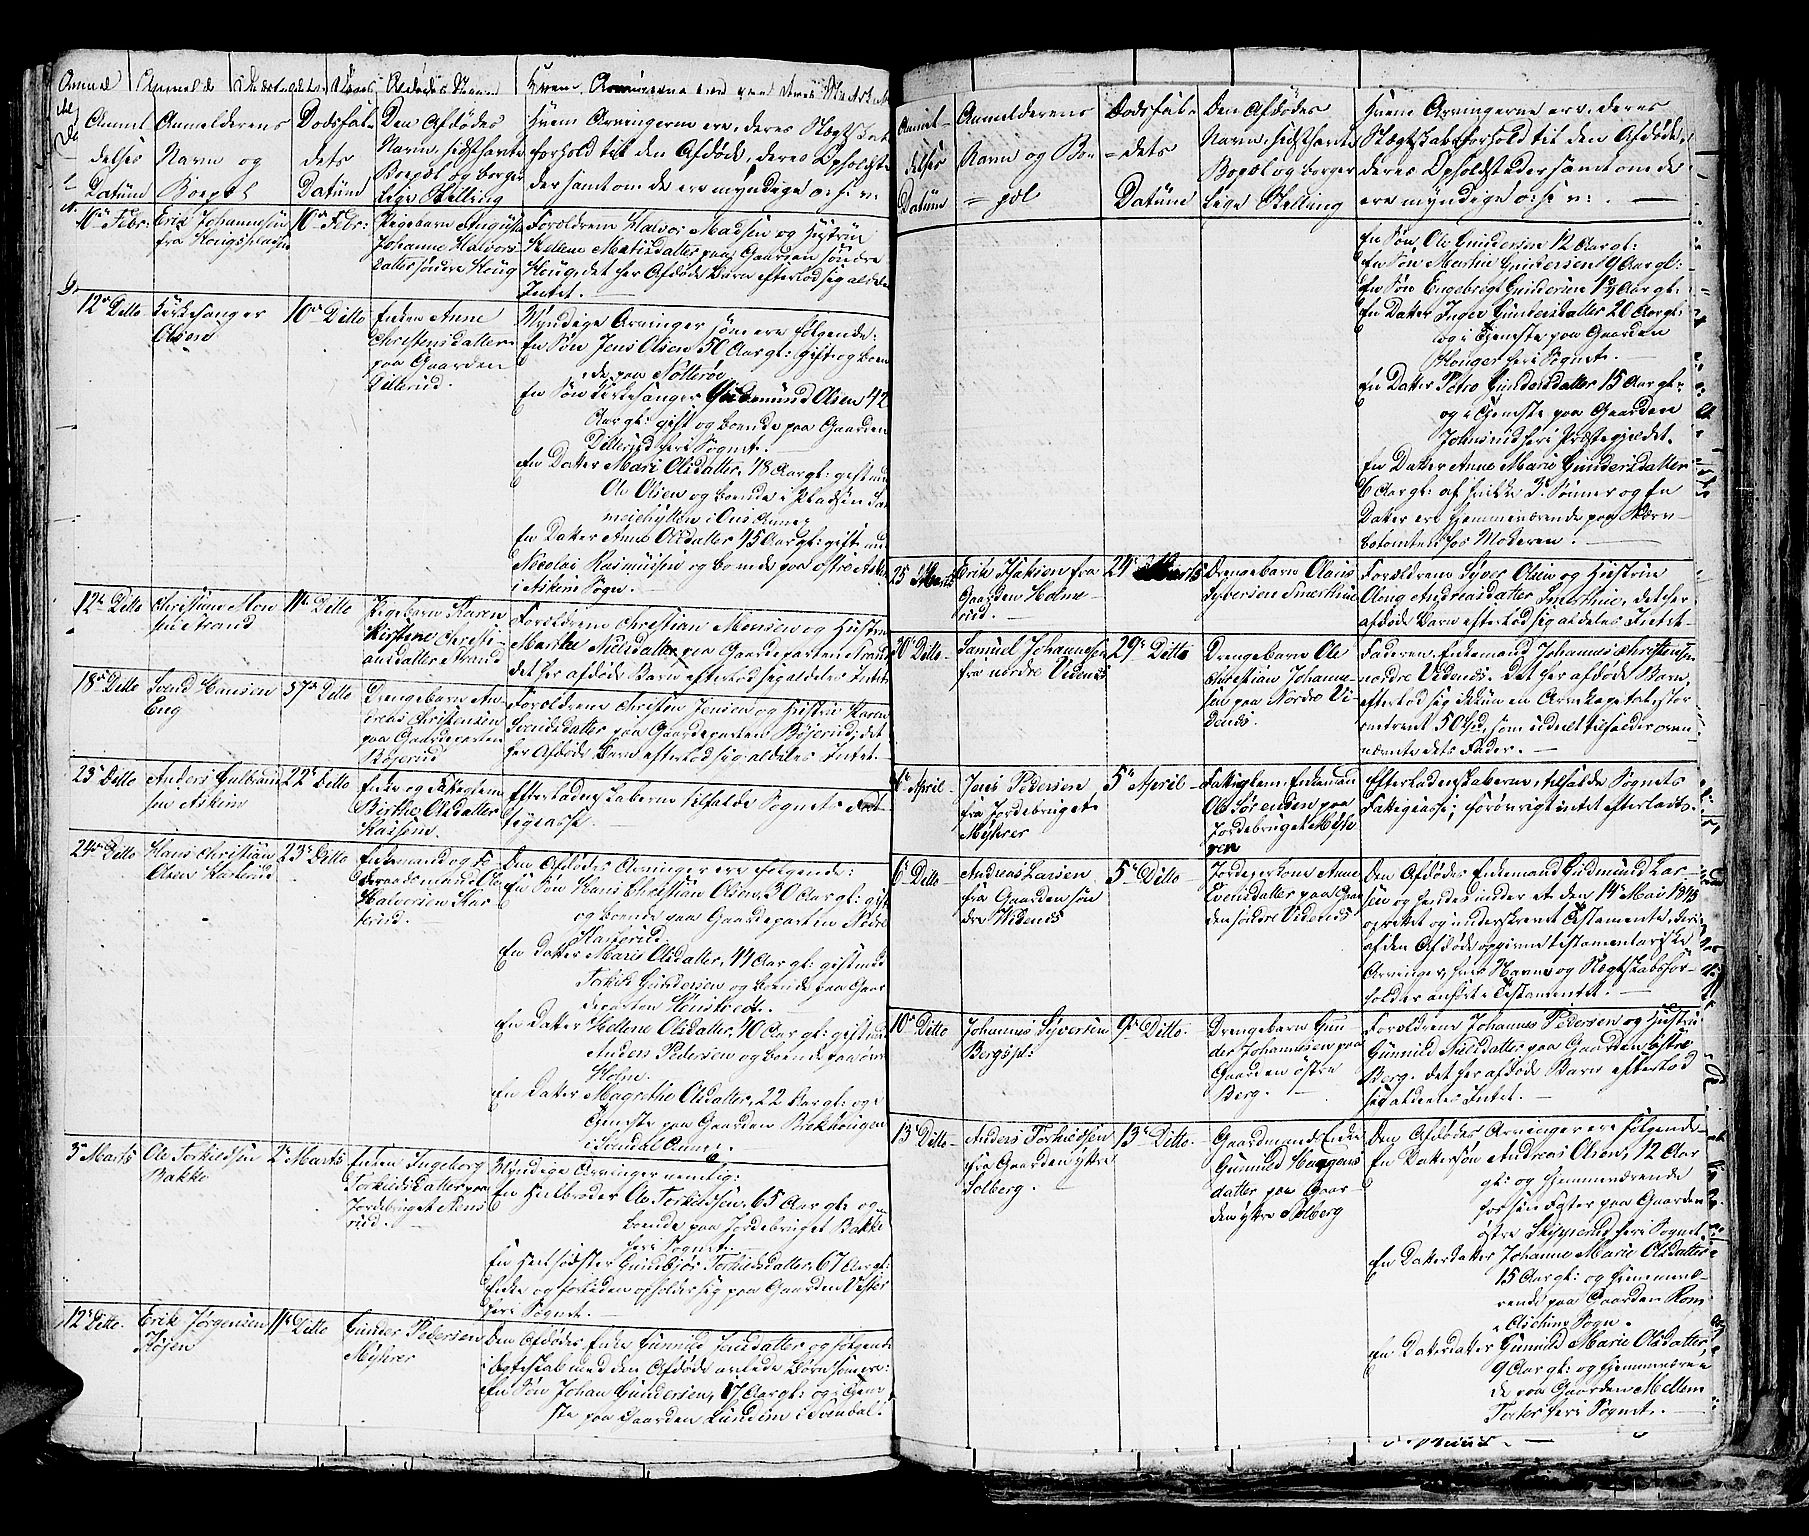 Anmel
delses
Datum
Anmelderens
Navn og
Boepæl
Dødsfal-
dets
Datum
Den Afdødes
Navn, sidsthavte
Boepæl og borger
lige Stilling
Hvem Arvingerne ere, deres Slægtskabs
forhold til den Afdøde, deres Opholdste
der samt om de ere myndige o: s: v:
10de Febr:
Erik Johannesen
fra Hougsplassen
10de Febr:
Pigebarn Auguste
Johanne Halvors-
datter søndre Houg
Forældrene Halvor Madsen og Hustrue
Hellene Matisdatter paa Gaarden søndre
Houg, det her Afdøde Barn efterlod sig aldeles
Intet. —
12te Ditto
Kirkesanger
Olsen
10de Ditto
Enken Anne
Christensdatter
paa Gaarden
Dillerud.
Myndige Arvinger som ere følgende:
En Søn Jens Olsen 50 Aar gl: gift og boen
de paa Nøtterøe
En Søn Kirkesanger Gudmund Olsen 42
Aar gl: gift og boende paa Gaarden
Dillerud her i Sognet.
En Datter Mari Olsdatter, 48 Aar gl: gift med
Ole Olsen og boende i Pladsen
En Datter Anne Olsdatter 45 Aar gl: gift med
Nicolai Rasmussen og boende paa østre Askim
i Askim Sogn. —
12te Ditto
Christian Mon
sen Strand
11te Ditto
Pigebarn Karen
Kirstine Christi-
ansdatter Strand
Forældrene Christian Monsen og Hustrue
Marthe Nielsdatter paa Gaardeparten Strand
det her afdøde Barn efterlod sig aldeles Intet
18de Ditto
Svend Hansen
Eng
17de Ditto
Drengebarn An
dreas Christensen
paa Gaardeparten
Bøjerud
Forældrene Christen Jensen og Hustrue Karen
Svendsdatter paa Gaardeparten Bøjerud; det
her Afdøde Barn efterlod sig aldeles Intet. —
23de Ditto
Anders Gulbrand
sen Askim
22de Ditto
Enke og Fattiglem
Birthe Olsdatter
Efterladenskaberne tilfalde Sognets Fat-
tigcasse.
24de Ditto
Hans Christian
Olsen
23de Ditto
Enkemand og Fø
deraadsmand Ole
Halvorsen Kas
serud.
Den Afdødes Arvinger ere følgende:
En Søn Hans Christian Olsen, 30 Aar gl: gift
og boende paa Gaardeparten Nedre
Kasserud.
En Datter Maria Olsdatter, 44 Aar gl: gift med
Torkild Gundersen og boende paa Gaar
departen
En Datter Hellene Olsdatter, 40 Aar gl: gift med
Anders Pedersen og boende paa øvre
Holm.
En Datter Magrethe Olsdatter, 22 Aar gl: og i
Tjeneste paa Gaarden Birkhougen
i Svindal Annex. —
3de Marts
Ole Torkildsen
Bakke
2de Marts
Enken Ingeborg
Torkildsdatter paa
Jordebruget
Myndige Arvinger nemlig:
En Helbroder Ole Torkildsen, 65 Aar gl: og
boende paa Jordebruget Bakke
her i Sognet. —
En Helsøster Gunbjør Torkildsdatter, 67 Aar gl:
Enke og for tiden opholder sig paa Gaarden
her i Sognet. —
12te Ditto
Erik Jørgensen
11te Ditto
Gunder Pedersen
Myhrer
Den Afdødes Enke Gunnild Jensdatter og følgende
i Egteskab med den Afdøde avlede Børn som ere:
En Søn Johan Gundersen, 17 Aar gl: og i Tjene
ste paa Gaarden Lundem i Svindal.
Anmel-
delses
Datum
Anmelderens
Navn og Bo-
=pæl
Dødsfal-
=dets
Datum
Den Afdødes
Navn, sidsthavte
Bopæl og borger
lige Stilling
Hvem Arvingerne ere, deres
Slægtskabsforhold til den Afdøde,
deres Opholdsteder samt om de
ere myndige o: s: v: —
En Søn, Ole Gundersen 12 Aar gl:
En Søn Martin Gundersen 9 Aar gl:
En Søn Engebregt Gundersen 1½ Aar gl:
En Datter Inger Gundersdatter 20 Aar gl:
og i Tjeneste paa Gaarden
Houger her i Sognet. —
En Datter Petro Gundersdatter 15 Aar gl:
og i Tjeneste paa Gaarden
Johnsrud her i Præstegjeldet. —
En Datter Anne Marie Gundersdatter
6 Aar gl: af hvilke 3de Sønner og En
Datter ere hjemmeværende paa
hos Moderen. —
25 Marts
Erik Isaksen fra
Gaarden Holme-
rud.
24de Marts
Drengebarn Olaus
Syversen Smerthue
Forældrene Syver Olsen og Hustrue
Olena Andreasdatter Smerthue, det her
afdøde Barn efterlod sig aldeles Intet.
30te Ditto
Samuel Johannesen
fra nordre Videnes
29de Ditto
Drengebarn Ole
Christian Johanne
sen paa Nordre Vi-
denes.
Faderen, Enkemand Johannes Christensen
nordre Videnes. Det her afdøde Barn,
efterlod sig ikkun en Arvekapital, stor
omtrent 50 Spd, som udeelt tilfalder oven-
nævnte dets Fader. —
6te April
Jens Pedersen
fra Jordebruget
Myhrer
5te April
Fattiglem, Enkemand
Ole Sørensen paa
Jordebruget Myhr
ren
Efterladenskaberne, tilfalde Sognets
Fattigcasse; forøvrigt intet efterladt
6te Ditto
Andreas Larsen
fra Gaarden søn
dre Videnes
5te Ditto
Jordejerkone Anne
Evensdatter paa Gaar
den søndre Videnes
Den Afdødes Enkemand Gudmund Lar-
sen og hendes under et den 14de Mai 1845
oprettet og underskrevet Testamente, der
af den Afdøde opgivne testamentariske
Arvinger, hvis Navne og Slægtskabsfor-
holder anført i Testamentet. —
10de Ditto
Johannes Syversen
Bergspl:
9de Ditto
Drengebarn Gun
der Johannesen paa
Gaarden østre
Berg. —
Forældrene Johannes Pedersen og Hustru
Gunnild Nielsdatter paa Gaarden østre
Berg. Det her afdøde Barn efterlod
sig aldeeles Intet. —
13de Ditto
Anders Torkildsen
fra Gaarden ytre
Solberg.
13de Ditto
Gaardmands Enke
Gunnild Haagens
datter paa Gaar-
den ytre Solberg
Den Afdødes Arvinger ere følgende
En Dattersøn Andreas Olsen, 12 Aar
gl: og hjemmeværende
hos sin Foster paa Gaarden
østre Skipperud her i Sognet.
En Datterdatter Johanne Marie Olsdatter
15 Aar gl: og hjemmevæ-
rende paa Gaarden Rom
i Askims Sogn.
En Datterdatter Gunnild Marie Olsdatter,
9 Aar gl: og hjemmeværen
de paa Gaarden Mellem
Tvete her i Sognet. —